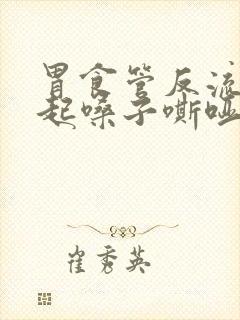 胃食管反流
起嗓子嘶哑
崔秀英